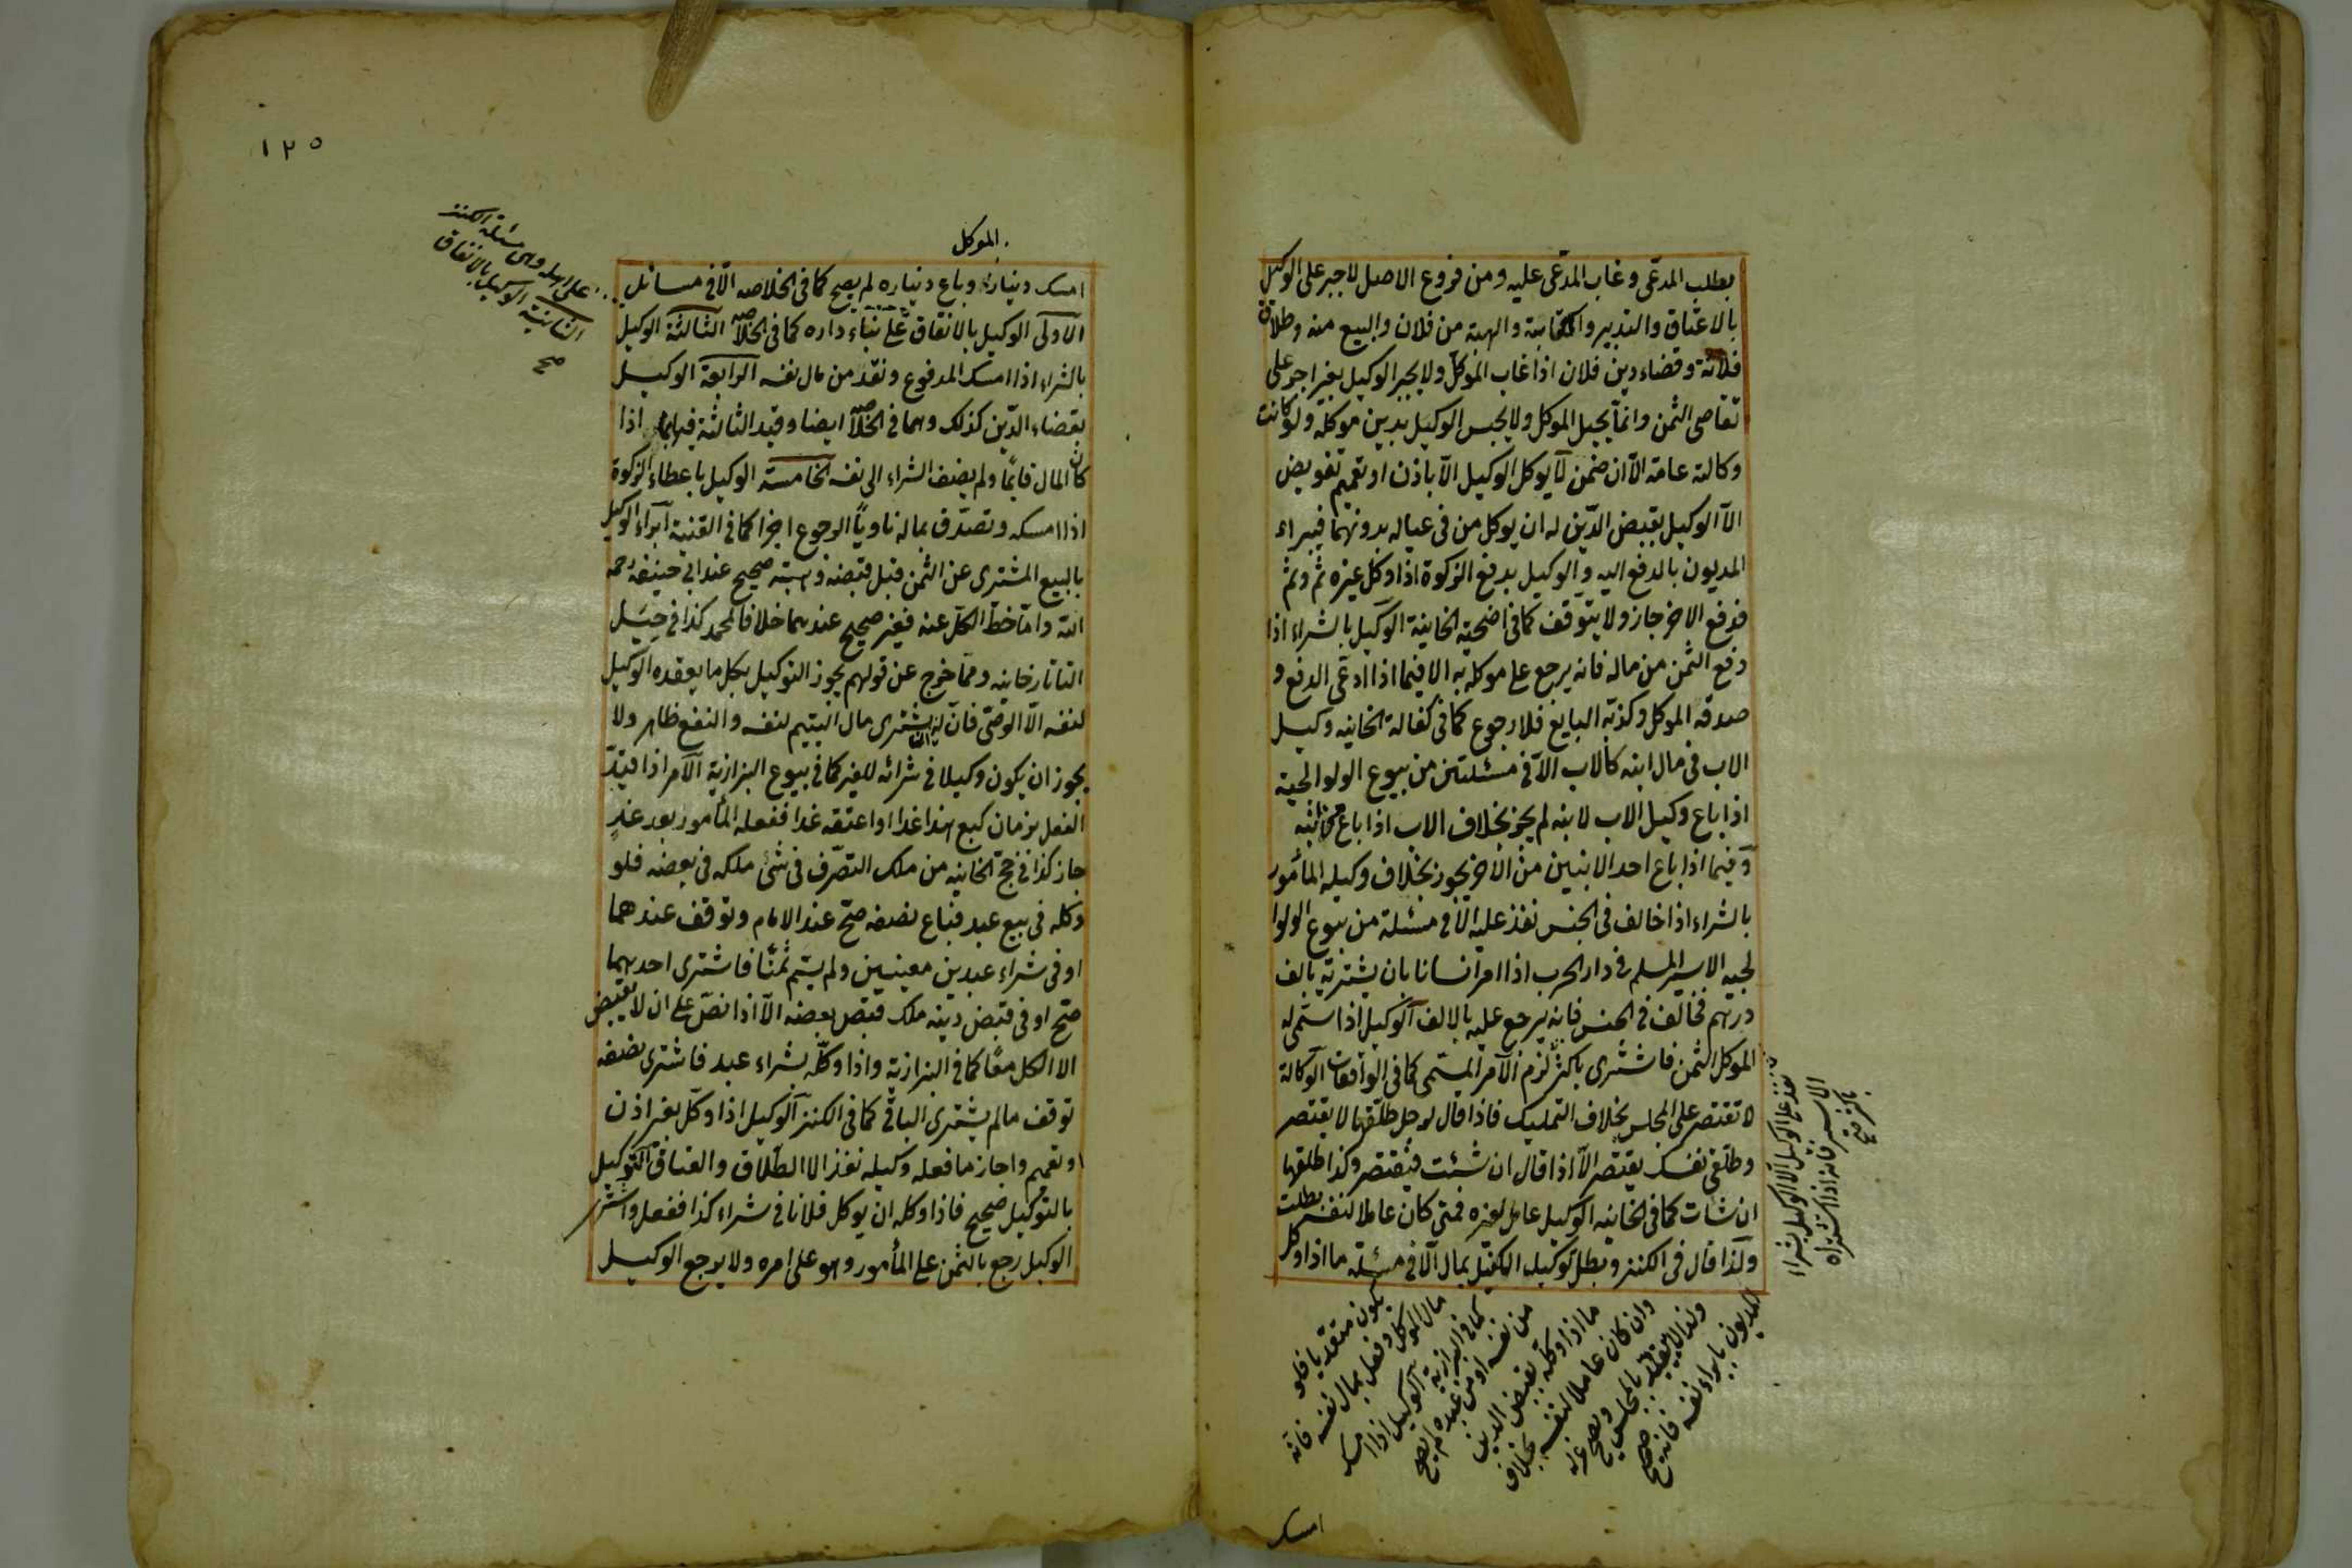 بطلب المدعى وغاب المدعى عليه ومن فروع الاصل لا جبر على الوكيل
بالاعتاق والتدبير والكتابة والهبة من فلان والبيع منه وطلاق
فلانة وقضاء دين فلان اذا غاب الموكل ولا يجبر الوكيل بغير اجر على
تقاضى الثمن وانما يحيل الموكل ولا يحبس الوكيل بدين موكله ولو كانت
وكالته عامة الا ان ضمن لا يوكل الوكيل الا باذن او تعميم تفويض
الا الوكيل بقبض الدين له ان يوكل من فى عياله بدونهما فيبراء
المديون بالدفع اليه والوكيل بدفع الزكوة اذا وكل غيره ثم وثم
فدفع الاخر جاز ولا يتوقف كما فى اضحية الخانية الوكيل بالشراء اذا
دفع الثمن من ماله فانه يرجع على موكله به الا فيما اذا ادعى الدفع و
صدقه الموكل وكذبه البايع فلا رجوع كما فى كفالة الخانيه وكيل
الاب فى مال ابنه كالاب الا فى مسئلتين من بيوع الولوالجية
اذا باع وكيل الاب لابنه لم يجز بخلاف الاب اذا باع من ابنه
وفيما اذا باع احد الابنين من الاخر يجوز بخلاف وكيله المأمور
بالشراء اذا خالف فى الجنس نفذ عليه الا فى مسئلة من بيوع الولوا
لجيه الاسير المسلم فى دار الحرب اذا امر انسانا بان يشتريه بالف
درهم فخالف فى الجنس فانه يرجع عليه بالالف الوكيل اذا سمى له
الموكل الثمن فاشترى باكثر لزم الآمر المسمى كما فى الواقعات الوكالة
لا تقتصر على المجلس بخلاف التمليك فاذا قال لرجل طلقها لا يقتصر
وطلقى نفسك يقتصر الا اذا قال ان شئت فيقتصر وكذا طلقها
ان شات كما فى الخانيه الوكيل عامل لغيره فمتى كان عاملا لنفسه بطلت
ولذا قال فى الكنز وبطل توكيله الكفيل بمال الا فى مسئلة ما اذا وكل
نفذ على الوكيل الا الوكيل بشراء
الاسير فانه اذا اشتراه
باكثر
المديون بابراء نفسه فانه صحيح
ولذا لا يتقيد بالمجلس ويصح عزله
وان كان عاملا لنفسه بخلاف
ما اذا وكله بقبض الدين
من نفسه او من عبده لم يصح
كما فى البزازية الوكيل اذا امسك
مال الموكل وفعل بمال نفسه فانه
يكون متعديا فلو
امسك
١٢٥
الموكل
امسك ديناره وباع ديناره لم يصح كما فى الخلاصه الا فى مسائل
الاولى الوكيل بالانفاق على بناء داره كما فى الخلاصه الثالثة الوكيل
بالشراء اذا امسك المدفوع ونقد من مال نفسه الرابعة الوكيل
بقضاء الدين كذلك وهما فى الخلاصه ايضا وقيد الثالثة فيها بما اذا
كان المال قايما ولم يضف الشراء الى نفسه الخامسة الوكيل باعطاء الزكوة
اذا امسكه وتصدق بماله ناويا الرجوع اجزا كما فى القنية ابراء الوكيل
بالبيع المشترى عن الثمن قبل قبضه وهبته صحيح عند ابى حنيفة رحمه
الله واما حط الكل عنه فغير صحيح عندهما خلافا لمحمد كذا فى حيل
التاتارخانيه ومما خرج عن قولهم يجوز التوكيل بكل ما يعقده الوكيل
لنفسه الا الوصى فان له ان يشترى مال اليتيم لنفسه والنفع ظاهر ولا
يجوز ان يكون وكيلا فى شرائه للغير كما فى بيوع البزازية الآمر اذا قيد
الفعل بزمان كبع هذا غدا او اعتقه غدا ففعله المأمور بعد غد
جاز كذا فى حج الخانيه من ملك التصرف فى شئ ملكه فى بعضه فلو
وكله فى بيع عبد فباع نصفه صح عند الامام وتوقف عندهما
او فى شراء عبدين معينين ولم يسم ثمنا فاشترى احدهما
صح او فى قبض دينه ملك قبض بعضه الا اذا نص على ان لا يقبض
الا الكل معا كما فى البزازية واذا وكله بشراء عبد فاشترى نصفه
توقف ما لم يشترى الباقى كما فى الكنز الوكيل اذا وكل بغير اذن
وتعميم واجاز ما فعله وكيله نفذ الا الطلاق والعتاق التوكيل
بالتوكيل صحيح فاذا وكله ان يوكل فلانا فى شراء كذا ففعل واشترى
الوكيل رجع بالثمن على المأمور وهو على امره ولا يرجع الوكيل
على اهله وهى مسئلة الكنز
الثانية الوكيل بالانفاق
صح